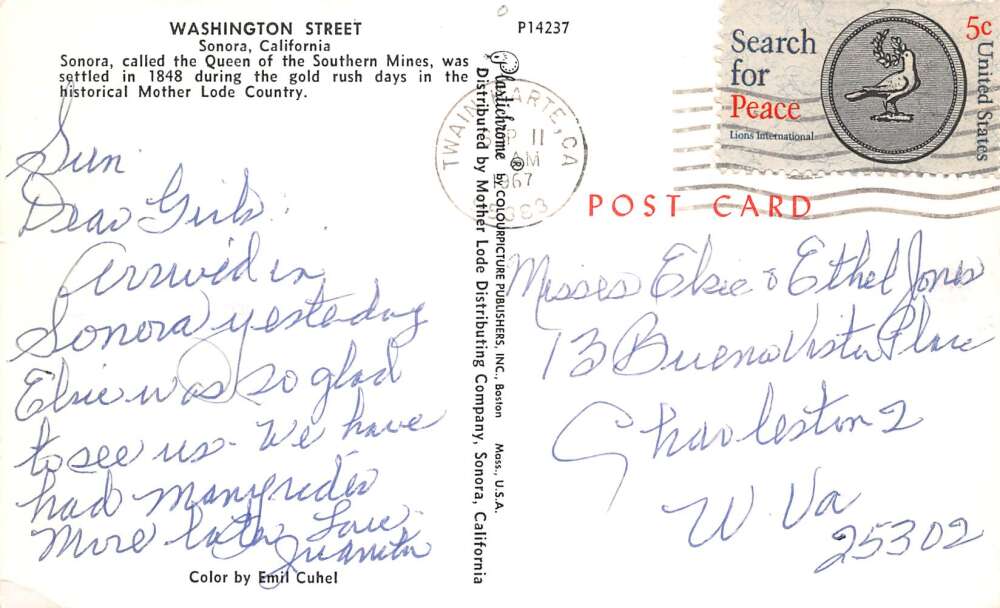 WASHINGTON STREET
Sonora, California
Sonora, called the Queen of the Southern Mines, was
settled in 1848 during the gold rush days in the
historical Mother Lode Country.
P14237
Sun
Dear Girls:
Arrived in
Sonora yesterday
Elsie was so glad
to see us. We have
had many rides
More later Love.
Juanita
Color by Emil Cuhel
Plastichrome ® by COLOURPICTURE PUBLISHERS, INC., Boston Mass., U.S.A.
Distributed by Mother Lode Distributing Company, Sonora, California
TWAIN HARTE, CA
11
AM
1967
Search
for
Peace
Lions International
5c
United States
POST CARD
Misses Elsie & Ethel Jones
13 Buena Vista Place
Charleston 2
W. Va
25302